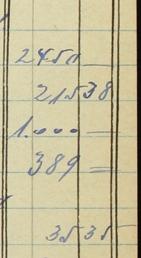 2450
21538
1.000 —
389 =
3535